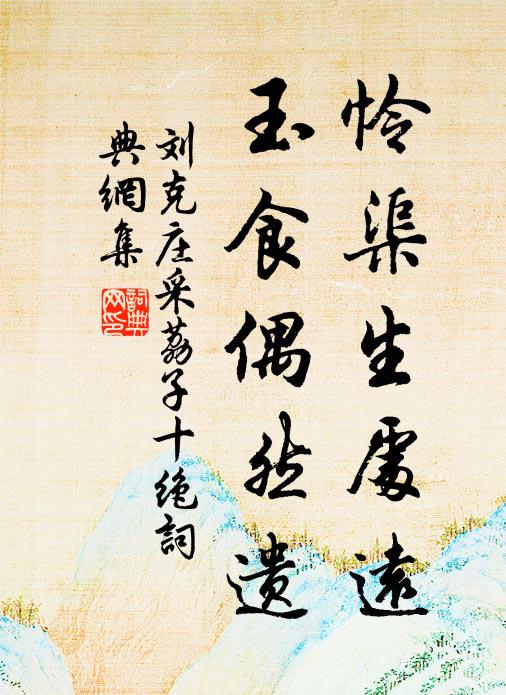 怜渠生處遠
玉食偶然遗
刘克庄采荔子十绝词
典網集
詞典网印